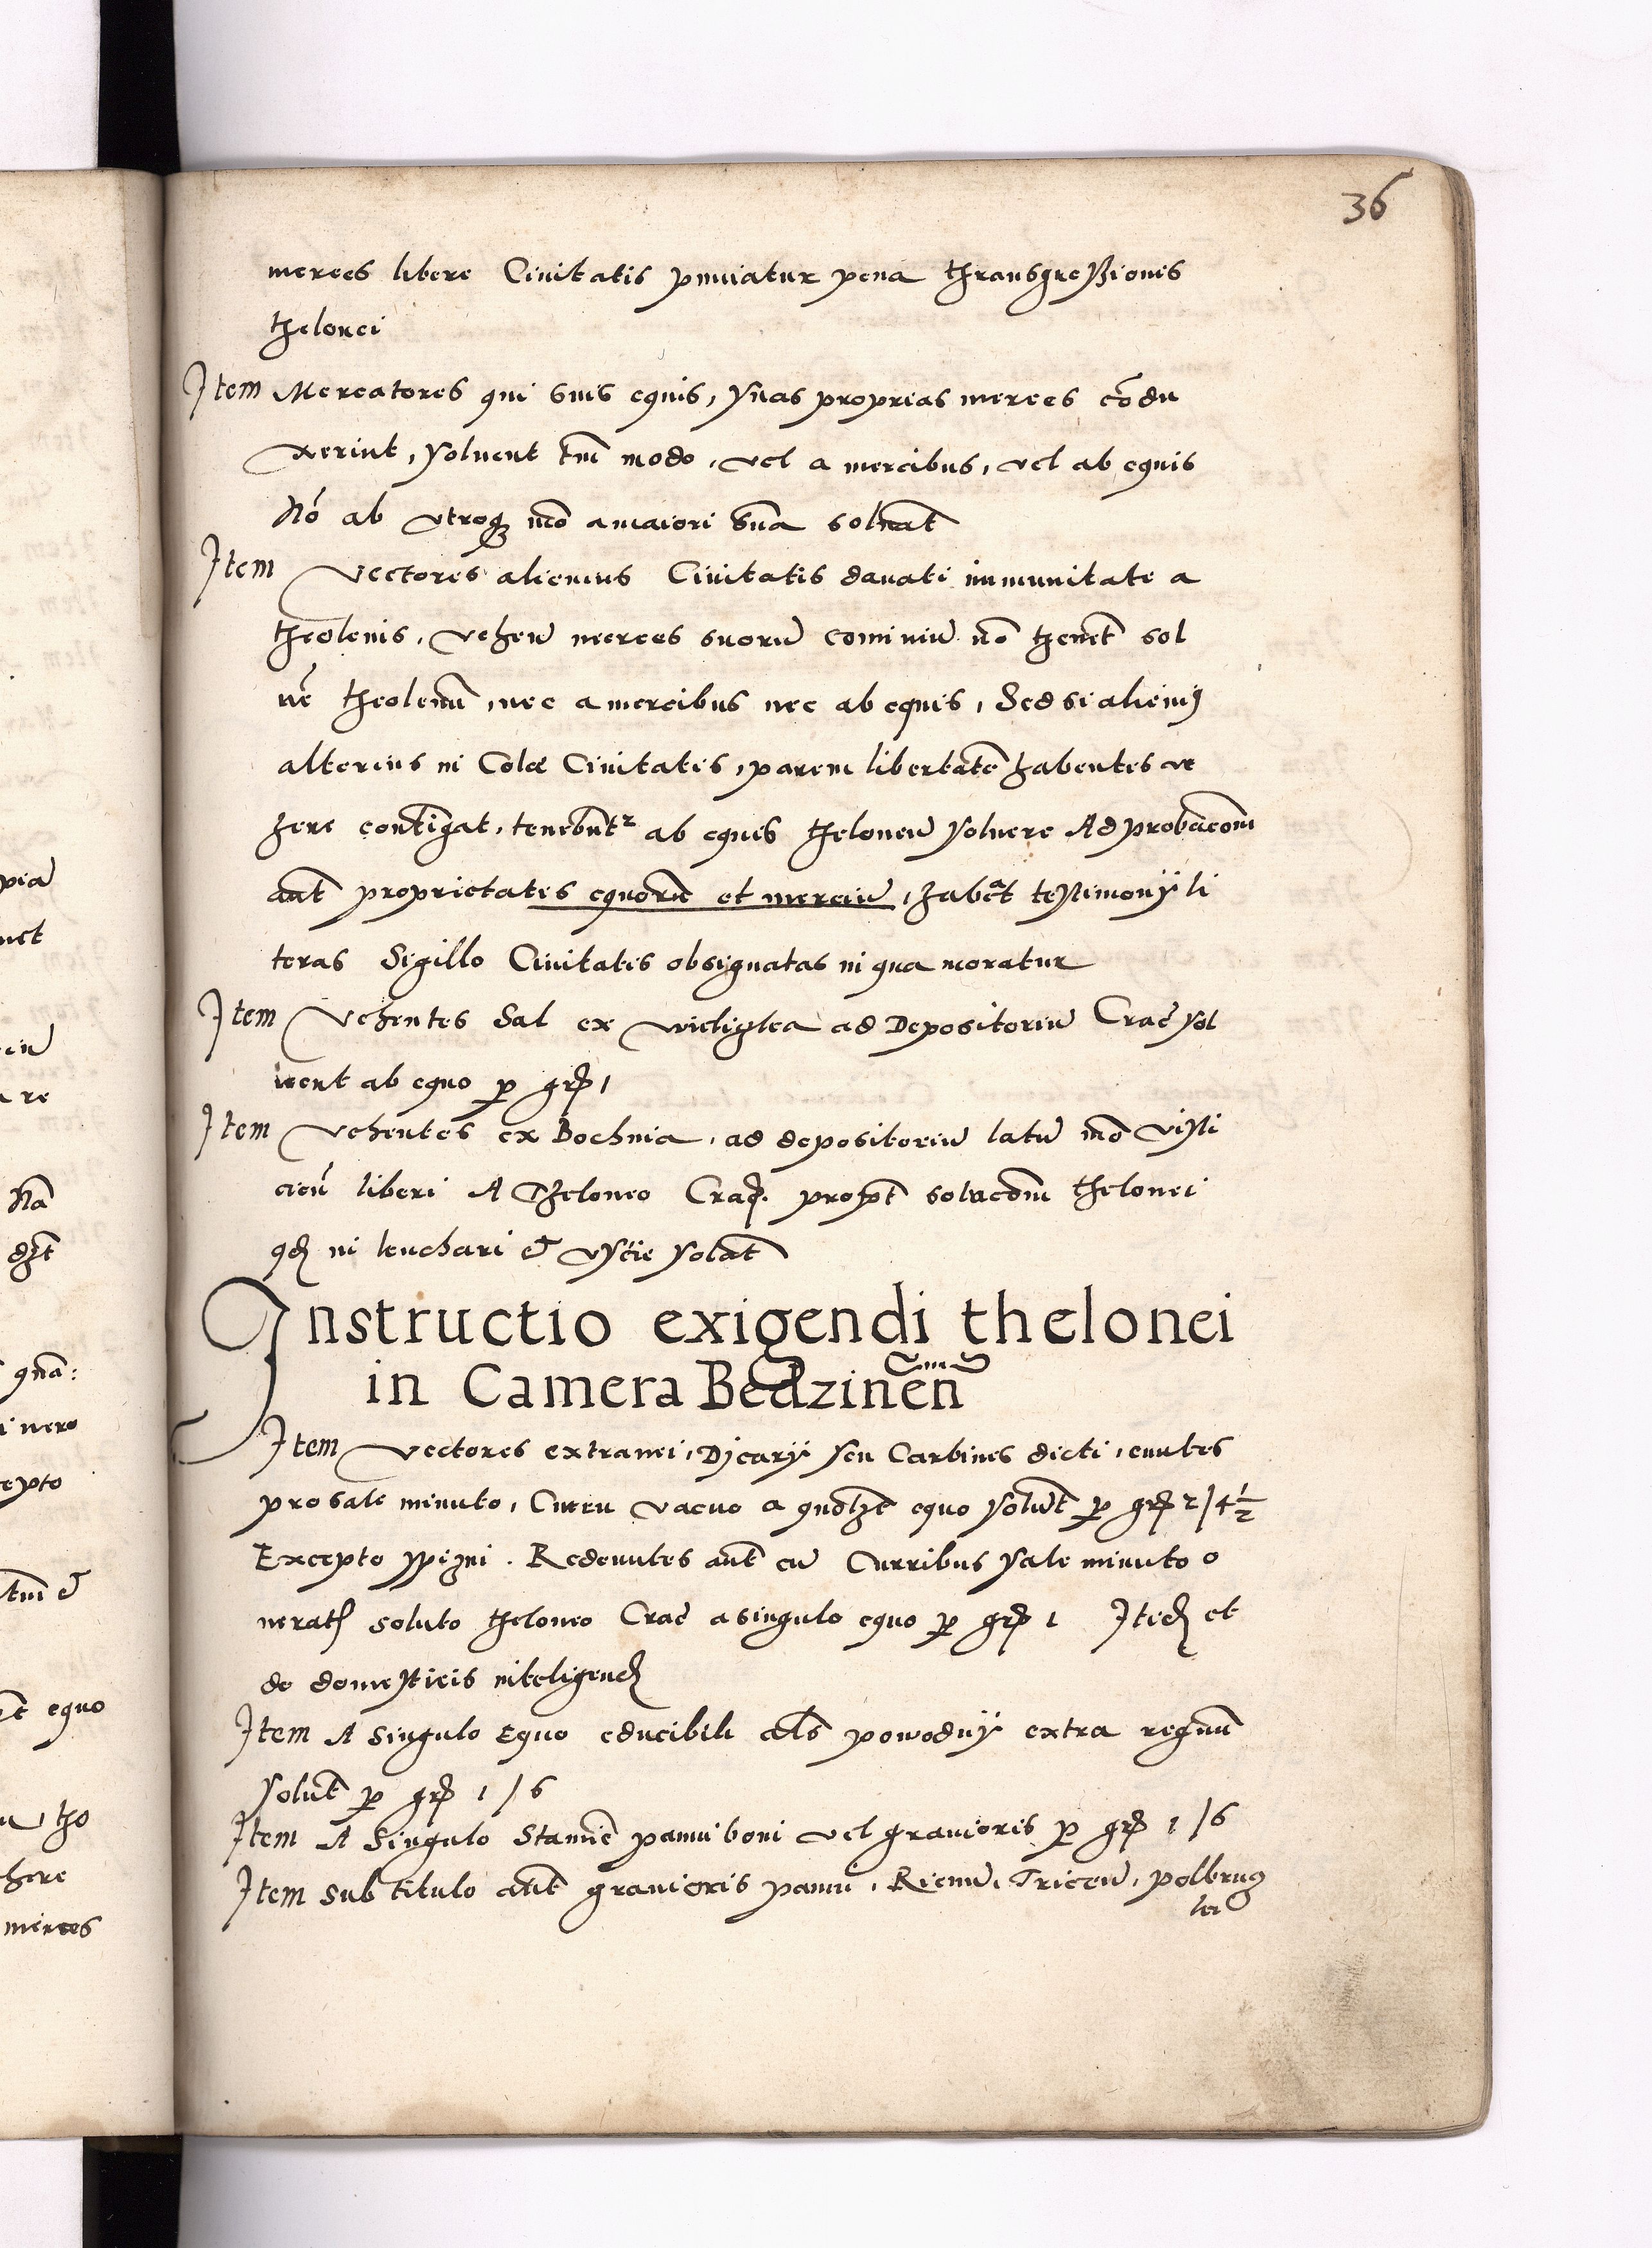 36
merces libere Civitatis puniatur pena thransgressionis
thelonei
Item Mercatores qui suis equis, suas proprias merces cōdu
xerint, solvent tm̄ modo, vel a mercibus, vel ab equis
Nō ab utroq̃ mō a maiori sūa solvāt
Item Vectores alicuius Civitatis donati immunitate a
theoleniis, vehen̄ merces suorū comiviū nō thenēt sol
vē theolenū, nec a mercibus nec ab equis, Sed si alicuiꝯ
alterius incolæ Civitatis, parem libertatē habentes ve
here contīgat, tenebūtr ab equis theloneū solvere Ad probāconi
aūt proprietates equorū et merciū, habeāt testimonÿ li
teras Sigillo Civitatis obsignatas in qua moratur
Item Vehentes Sal ex wieliczka ad Depositoriū Crac̄ sol
vent ab equo ꝑ gr̄ 1
Item Vehentes ex Bochnia, ad depositoriū latū mō visli
cieñ liberi A Theloneo Crac̄. propt̄ solucōm thelonei
qd̄ in lenchari et uscie solvāt
Instructio exigendi thelonei
in Camera Bedzinēn̄
Item Vectores extranei, Dicarÿ seu Carbines dicti, euntes
pro sale minuto, Curru vacuo a quolꝫt equo solvūt ꝑ gr̄ 2 / 4 1/2
Excepto spizni. Redeuntes aūt cū Curribus sale minuto o
neratꝭ soluto theloneo Crac̄ a singulo equo ꝑ gr̄ 1 Itid̄ et
de domesticis inteligend̄
Item A singulo Equo educibili als̄ powodnÿ extra regnū
solūt ꝑ gr̄ 1 / 6
Item A Singulo Stamīe panni boni vel gravioris ꝑ gr̄ 1 / 6
Item sub titulo aūt gravioris panni, Ricinū, Tricen̄, polbrug
ter